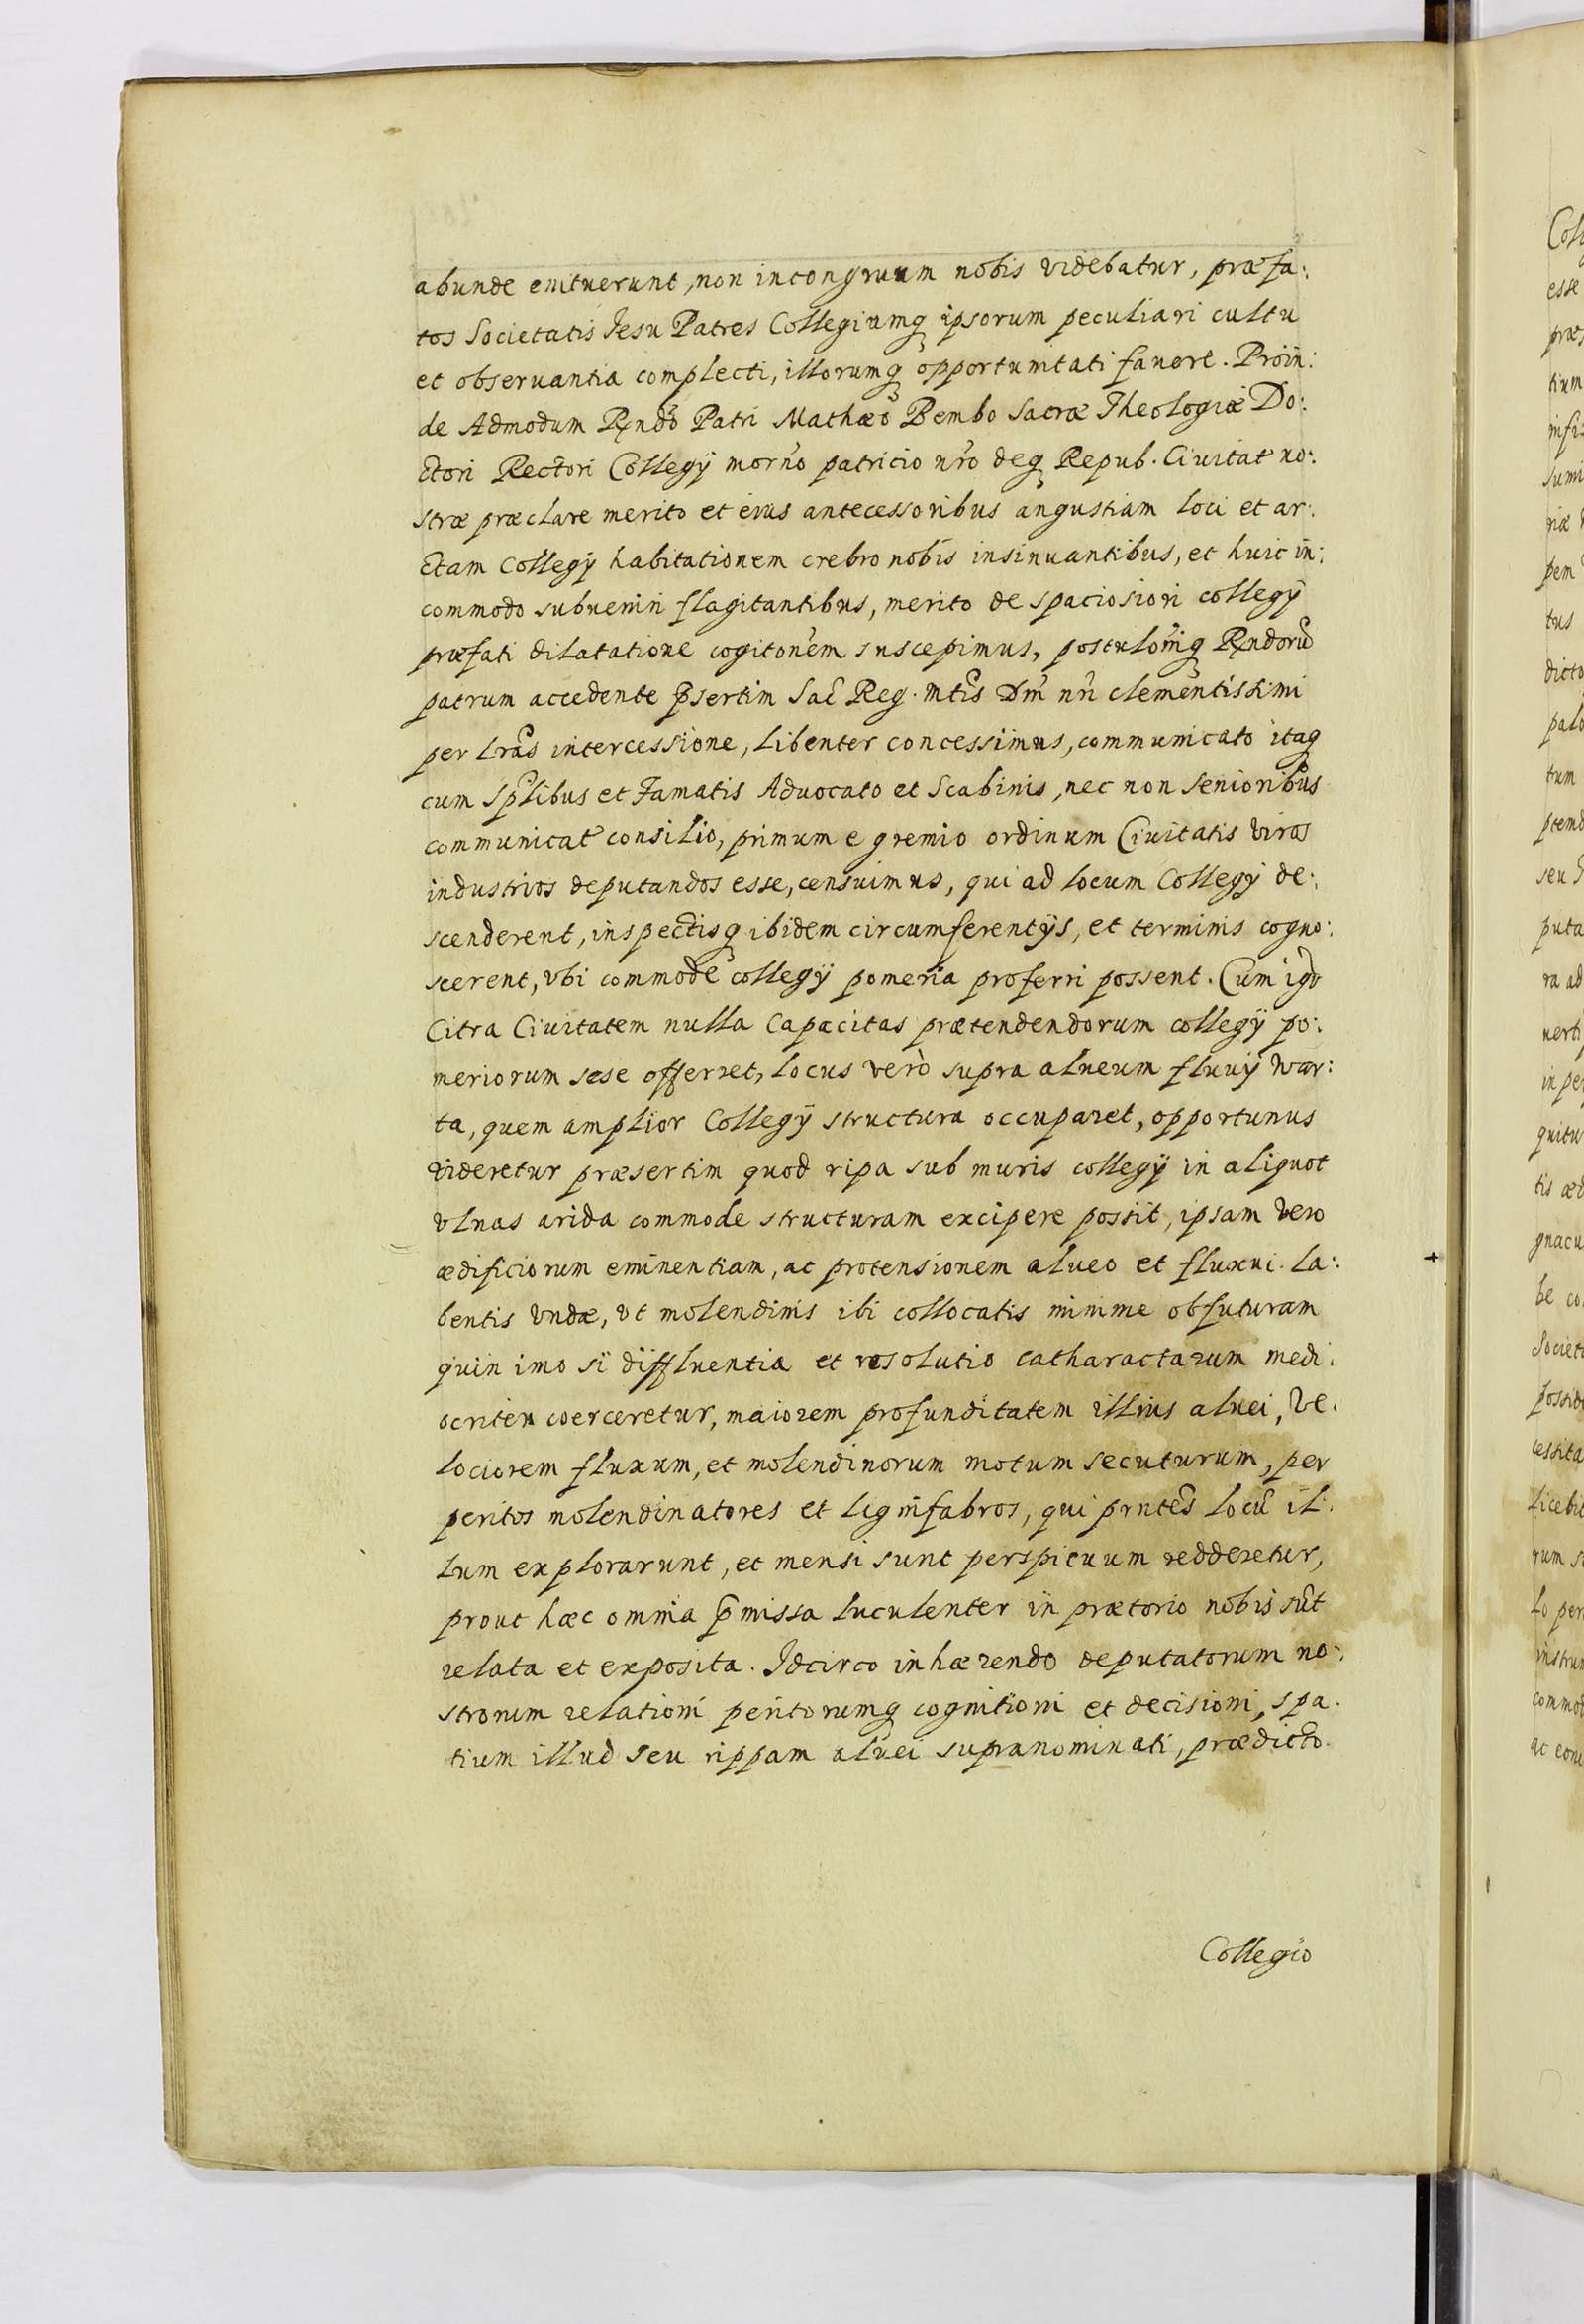 abunde enituerunt, non incongruum nobis videbatur, præfa:
tos Societatis Jesu Patres Collegiumq ipsorum peculiari cultu
et obseruantia complecti, illorumq opportunitati fauere. Proin:
de Admodum Rndo Patri Mathæo Bembo Sacræ Theologiæ Do:
ctori Rectori Collegÿ morno patricio nro deq Repub. Ciuitat no:
stræ præclare merito et eius antecessoribus angustiam loci et ar:
ctam Collegÿ habitationem crebro nobis insinuantibus, et huic in:
commodo subueniri flagitantibus, merito de spaciosiori collegÿ
præfati dilatatione cogitonem suscepimus, postulomq Rndoru
patrum accedente psertim Sac Reg. Mtis Dni nri clementissimi
per Lras intercessione, libenter concessimus, communicato itaq
cum Splibus et Famatis Aduocato et Scabinis, nec non Senioribus
communicat consilio, primum e gremio ordinum Ciuitatis viros
industrios deputandos esse, censuimus, qui ad locum Collegÿ de:
scenderent, inspectisq ibidem circumferentÿs, et terminis cogno:
scerent, vbi commode collegÿ pomeria proferri possent. Cum igr
Citra Ciuitatem nulla Capacitas prætendendorum collegÿ po:
meriorum sese offerret, locus verò supra alueum fluuÿ War:
ta, quem amplior Collegÿ structura occuparet, opportunus
videretur præsertim quod ripa sub muris collegÿ in aliquot
vlnas arida commode structuram excipere possit, ipsam vero
ædificiorum eminentiam, ac protensionem alueo et fluxui la:
bentis vndæ, vt molendinis ibi collocatis minime obfuturam
quin imo si diffluentia et resolutio catharactarum medi:
ocriter coerceretur, maiorem profunditatem illius aluei, ve:
lociorem fluxum, et molendinorum motum secuturum, per
peritos molendinatores et lignifabros, qui prntes locu il:
lum explorarunt, et mensi sunt perspicuum redderetur,
prout hæc omnia pmissa luculenter in prætorio nobis sut
relata et exposita. Idcirco inhærendo deputatorum no:
strorum relationi peritorumq cognitioni et decisioni, spa:
tium illud seu rippam aluei supranominati, prædicto
Collegio